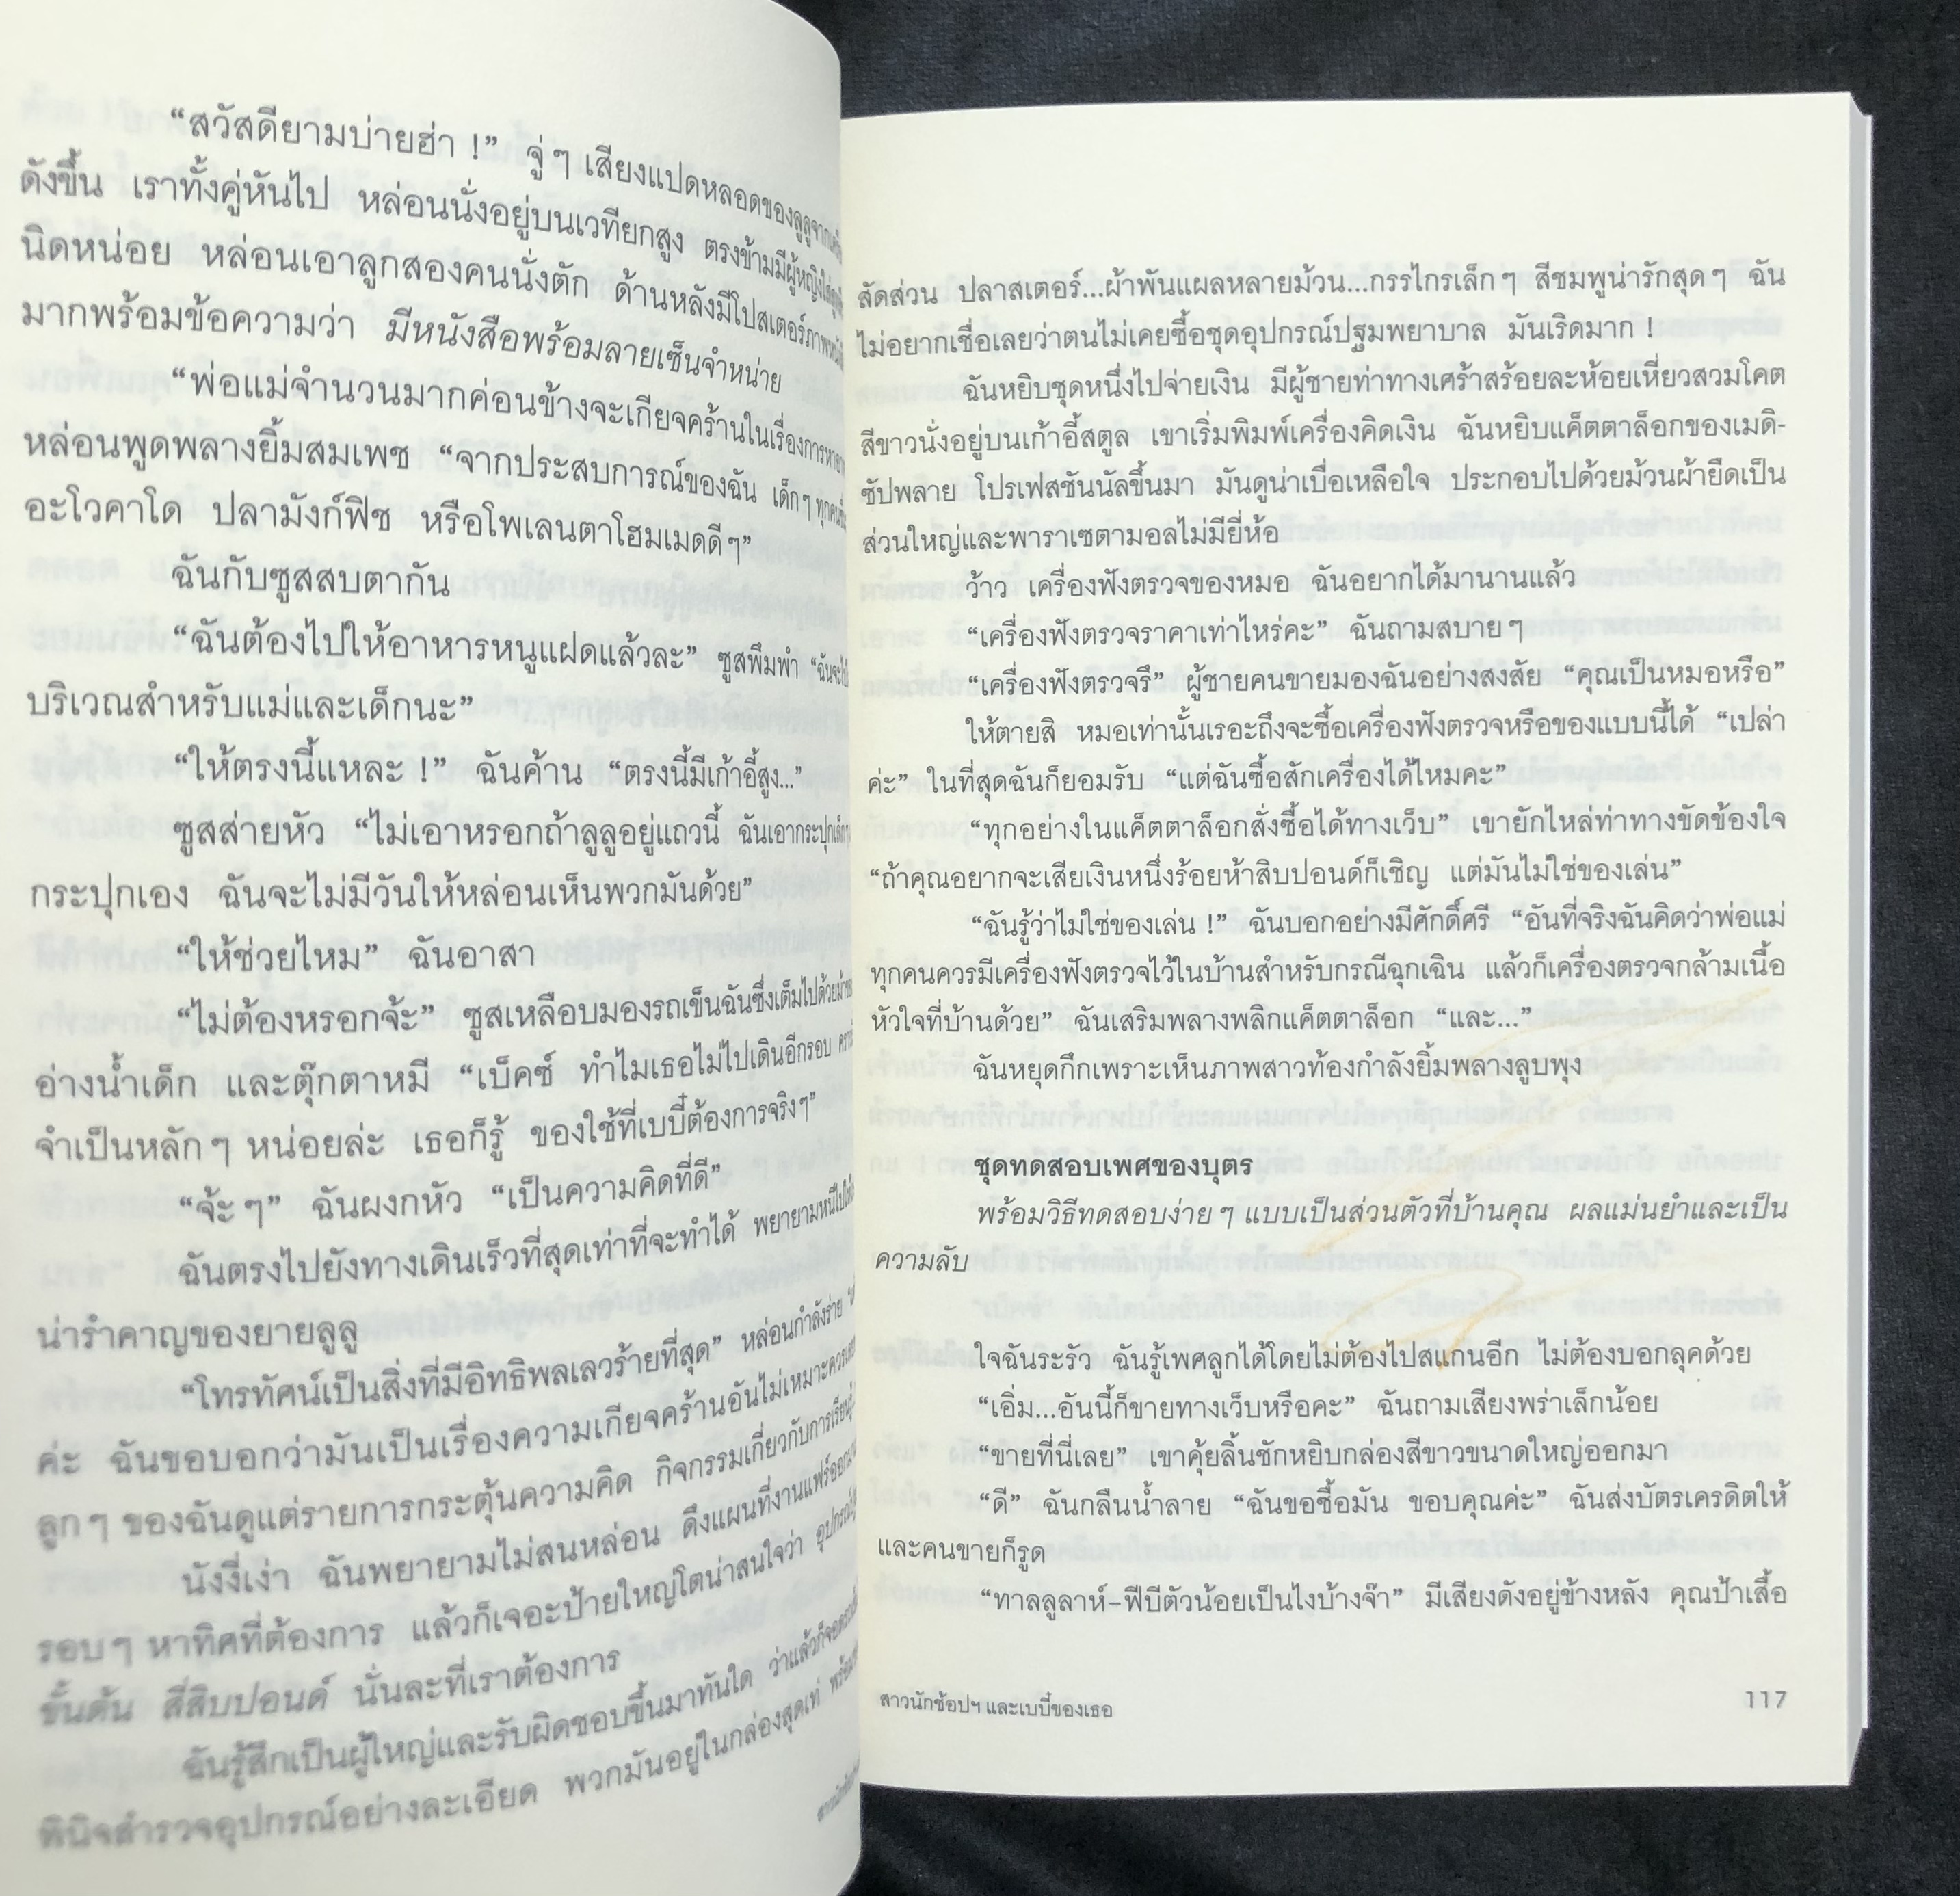 “สวัสดียามบ่ายฮ่า !” จู่ๆ เสียงแปดหลอดของลูลูจากเครื่อง
ดังขึ้น เราทั้งคู่หันไป หล่อนนั่งอยู่บนเวทียกสูง ตรงข้ามมีผู้หญิงใส่
นิดหน่อย หล่อนเอาลูกสองคนนั่งตัก ด้านหลังมีโปสเตอร์ภาพ
มากพร้อมข้อความว่า มีหนังสือพร้อมลายเซ็นจำหน่าย
“พ่อแม่จำนวนมากค่อนข้างจะเกียจคร้านในเรื่องการหา
หล่อนพูดพลางยิ้มสมเพช “จากประสบการณ์ของฉัน เด็กๆ ทุกคน
อะโวคาโด ปลามังก์ฟิช หรือโพเลนตาโฮมเมดดีๆ”
ฉันกับซูสสบตากัน
“ฉันต้องไปให้อาหารหนูแฝดแล้วละ” ซูสพึมพำ “ฉันจะไป
บริเวณสำหรับแม่และเด็กนะ”
“ให้ตรงนี้แหละ !” ฉันค้าน “ตรงนี้มีเก้าอี้สูง...”
ซูสส่ายหัว “ไม่เอาหรอกถ้าลูลูอยู่แถวนี้ ฉันเอากระปุกเล็ก
กระปุกเอง ฉันจะไม่มีวันให้หล่อนเห็นพวกมันด้วย”
“ให้ช่วยไหม” ฉันอาสา
“ไม่ต้องหรอกจ้ะ” ซูสเหลือบมองรถเข็นฉันซึ่งเต็มไปด้วยม้า
อ่างน้ำเด็ก และตุ๊กตาหมี “เบ็คซ์ ทำไมเธอไม่ไปเดินอีกรอบ
จำเป็นหลักๆ หน่อยล่ะ เธอก็รู้ ของใช้ที่เบบี๋ต้องการจริงๆ”
“จ้ะๆ” ฉันผงกหัว “เป็นความคิดที่ดี”
ฉันตรงไปยังทางเดินเร็วที่สุดเท่าที่จะทำได้ พยายามหนีไป
น่ารำคาญของยายลูลู
“โทรทัศน์เป็นสิ่งที่มีอิทธิพลเลวร้ายที่สุด” หล่อนกำลังร่าย
ค่ะ ฉันขอบอกว่ามันเป็นเรื่องความเกียจคร้านอันไม่เหมาะควร
ลูกๆ ของฉันดูแต่รายการกระตุ้นความคิด กิจกรรมเกี่ยวกับการเรียนรู้
นังงี่เง่า ฉันพยายามไม่สนหล่อน ดึงแผนที่งานแฟร์ออก
รอบๆ หาทิศที่ต้องการ แล้วก็เจอะป้ายใหญ่โตน่าสนใจว่า อุปกรณ์
ขั้นต้น สี่สิบปอนด์ นั่นละที่เราต้องการ
ฉันรู้สึกเป็นผู้ใหญ่และรับผิดชอบขึ้นมาทันใด ว่าแล้วก็จอด
พินิจสำรวจอุปกรณ์อย่างละเอียด พวกมันอยู่ในกล่องสุดเท่ พร้อม
สัดส่วน ปลาสเตอร์...ผ้าพันแผลหลายม้วน...กรรไกรเล็กๆ สีชมพูน่ารักสุดๆ ฉัน
ไม่อยากเชื่อเลยว่าตนไม่เคยซื้อชุดอุปกรณ์ปฐมพยาบาล มันเริดมาก !
ฉันหยิบชุดหนึ่งไปจ่ายเงิน มีผู้ชายท่าทางเศร้าสร้อยละห้อยเหี่ยวสวมโคต
สีขาวนั่งอยู่บนเก้าอี้สตูล เขาเริ่มพิมพ์เครื่องคิดเงิน ฉันหยิบแค็ตตาล็อกของเมดิ-
ซัปพลาย โปรเฟสซันนัลขึ้นมา มันดูน่าเบื่อเหลือใจ ประกอบไปด้วยม้วนผ้ายืดเป็น
ส่วนใหญ่และพาราเซตามอลไม่มียี่ห้อ
ว้าว เครื่องฟังตรวจของหมอ ฉันอยากได้มานานแล้ว
“เครื่องฟังตรวจราคาเท่าไหร่คะ” ฉันถามสบายๆ
“เครื่องฟังตรวจรึ” ผู้ชายคนขายมองฉันอย่างสงสัย “คุณเป็นหมอหรือ”
ให้ตายสิ หมอเท่านั้นเรอะถึงจะซื้อเครื่องฟังตรวจหรือของแบบนี้ได้ “เปล่า
ค่ะ” ในที่สุดฉันก็ยอมรับ “แต่ฉันซื้อสักเครื่องได้ไหมคะ”
“ทุกอย่างในแค็ตตาล็อกสั่งซื้อได้ทางเว็บ” เขายักไหล่ท่าทางขัดข้องใจ
“ถ้าคุณอยากจะเสียเงินหนึ่งร้อยห้าสิบปอนด์ก็เชิญ แต่มันไม่ใช่ของเล่น”
“ฉันรู้ว่าไม่ใช่ของเล่น !” ฉันบอกอย่างมีศักดิ์ศรี “อันที่จริงฉันคิดว่าพ่อแม่
ทุกคนควรมีเครื่องฟังตรวจไว้ในบ้านสำหรับกรณีฉุกเฉิน แล้วก็เครื่องตรวจกล้ามเนื้อ
หัวใจที่บ้านด้วย” ฉันเสริมพลางพลิกแค็ตตาล็อก “และ...”
ฉันหยุดกึกเพราะเห็นภาพสาวท้องกำลังยิ้มพลางลูบพุง
ชุดทดสอบเพศของบุตร
พร้อมวิธีทดสอบง่ายๆ แบบเป็นส่วนตัวที่บ้านคุณ ผลแม่นยำและเป็น
ความลับ
ใจฉันระรัว ฉันรู้เพศลูกได้โดยไม่ต้องไปสแกนอีก ไม่ต้องบอกลุคด้วย
“เอิ่ม...อันนี้ก็ขายทางเว็บหรือคะ” ฉันถามเสียงพร่าเล็กน้อย
“ขายที่นี่เลย” เขาคุ้ยลิ้นชักหยิบกล่องสีขาวขนาดใหญ่ออกมา
“ดี” ฉันกลืนน้ำลาย “ฉันขอซื้อมัน ขอบคุณค่ะ” ฉันส่งบัตรเครดิตให้
และคนขายก็รูด
“ทาลลูลาห์-ฟีบีตัวน้อยเป็นไงบ้างจ๊า” มีเสียงดังอยู่ข้างหลัง คุณป้าเสื้อ
สาวนักช้อปฯ และเบบี๋ของเธอ 117